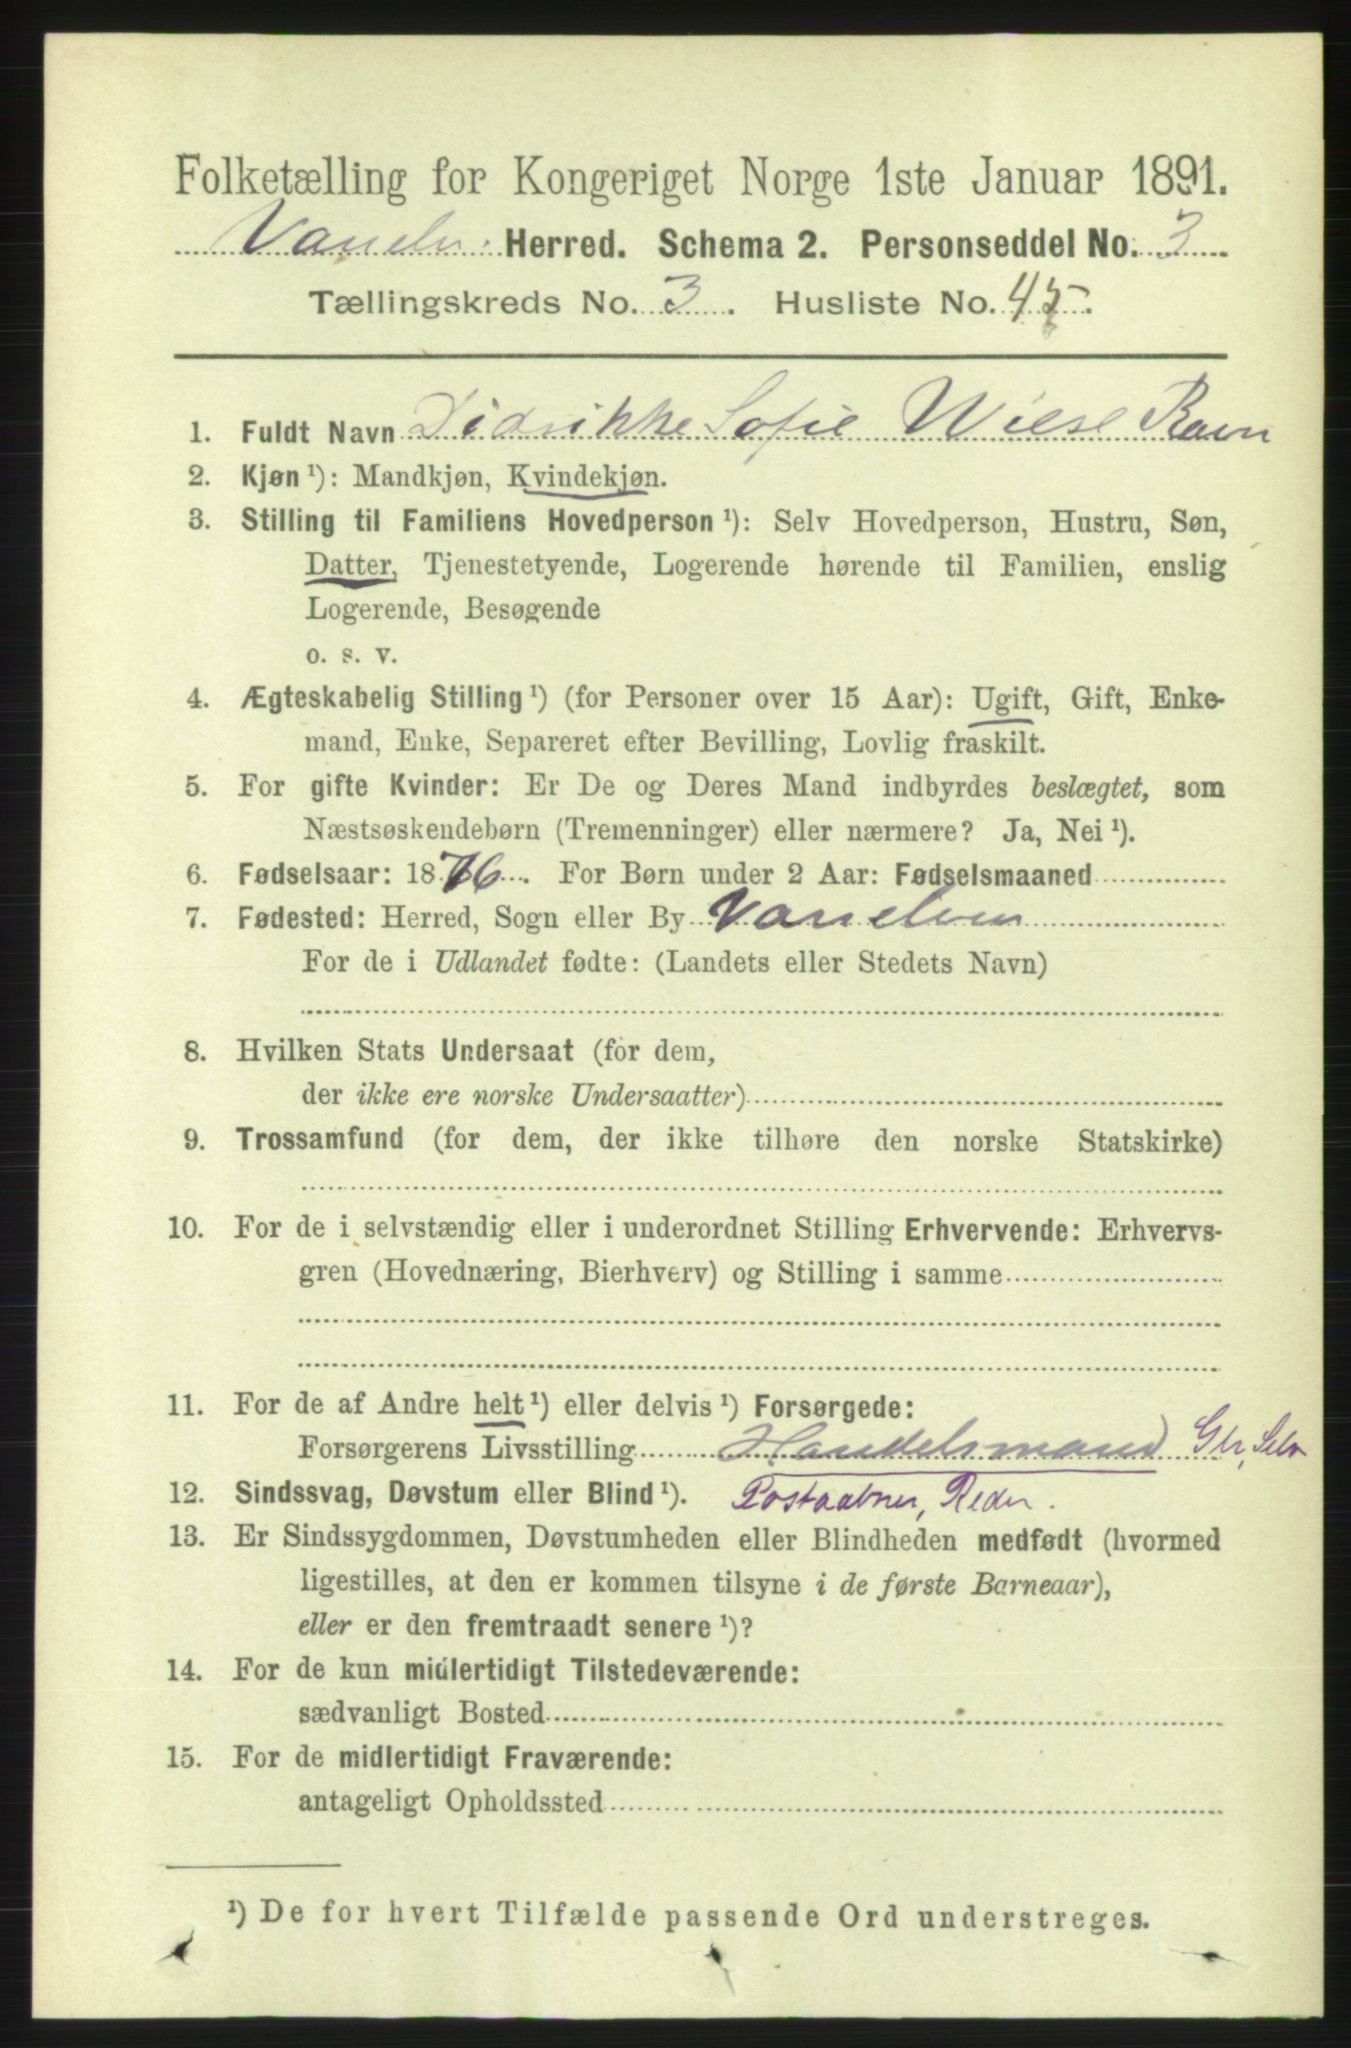 Folketælling for Kongeriget Norge 1ste Januar 1891.
Vanelv: Herred. Schema 2. Personseddel No. 3
Tællingskreds No. 3. Husliste No. 45.
1. Fuldt Navn Didrikke Sofie Wiese Ravn
2. Kjøn ¹): Mandkjøn, Kvindekjøn.
3. Stilling til Familiens Hovedperson ¹): Selv Hovedperson, Hustru, Søn,
Datter, Tjenestetyende, Logerende hørende til Familien, enslig
Logerende, Besøgende
o. s. v.
4. Ægteskabelig Stilling ¹) (for Personer over 15 Aar): Ugift, Gift, Enke-
mand, Enke, Separeret efter Bevilling, Lovlig fraskilt.
5. For gifte Kvinder: Er De og Deres Mand indbyrdes beslægtet, som
Næstsøskendebørn (Tremenninger) eller nærmere? Ja, Nei ¹).
6. Fødselsaar: 1876. For Børn under 2 Aar: Fødselsmaaned
7. Fødested: Herred, Sogn eller By Vanelven
For de i Udlandet fødte: (Landets eller Stedets Navn)
8. Hvilken Stats Undersaat (for dem,
der ikke ere norske Undersaatter)
9. Trossamfund (for dem, der ikke tilhøre den norske Statskirke)
10. For de i selvstændig eller i underordnet Stilling Erhvervende: Erhvervs-
gren (Hovednæring, Bierhverv) og Stilling i samme
11. For de af Andre helt ¹) eller delvis ¹) Forsørgede:
Forsørgerens Livsstilling Handelsmand Gbr, Selv
12. Sindssvag, Døvstum eller Blind ¹). Postaabner, Reder.
13. Er Sindssygdommen, Døvstumheden eller Blindheden medfødt (hvormed
ligestilles, at den er kommen tilsyne i de første Barneaar),
eller er den fremtraadt senere ¹)?
14. For de kun midlertidigt Tilstedeværende:
sædvanligt Bosted
15. For de midlertidigt Fraværende:
antageligt Opholdssted
¹) De for hvert Tilfælde passende Ord understreges.